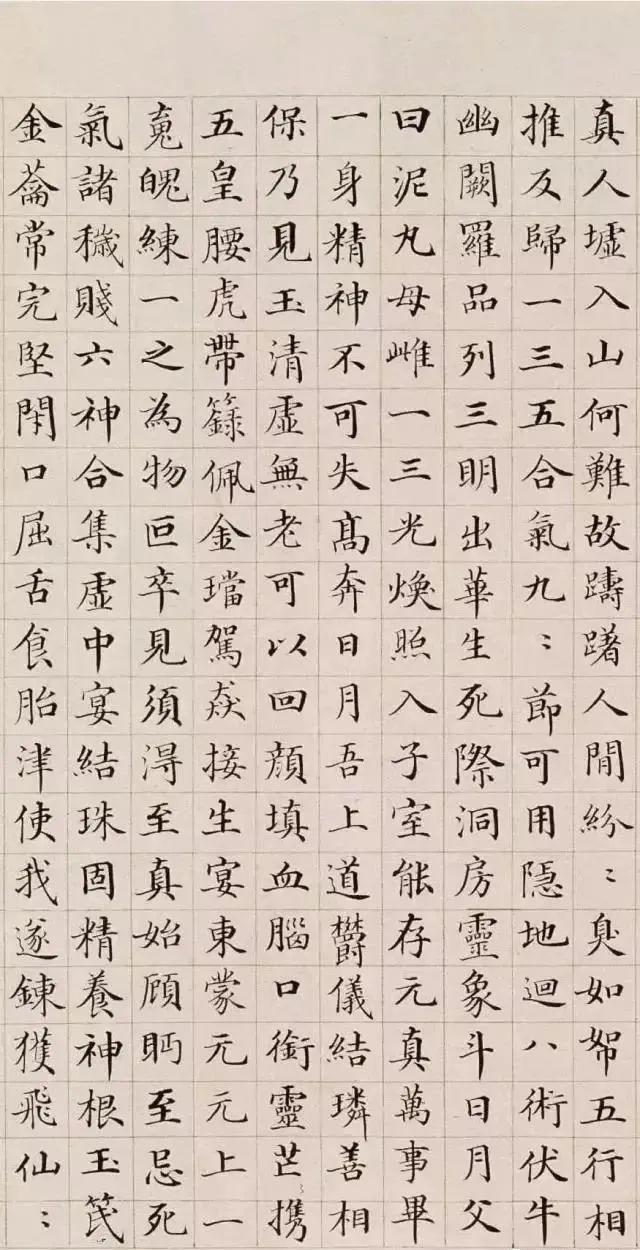 真人墟入山何難故躊躇人間紛〻臭如帤五行相
推反歸一三五合氣九〻節可用隱地迴八術伏牛
幽闕羅品列三明出華生死際洞房靈象斗日月父
曰泥丸母雌一三光煥照入子室能存元真萬事畢
一身精神不可失高奔日月吾上道欝儀結璘善相
保乃見玉清虛無老可以回顏填血腦口銜靈芒携
五皇腰虎帶籙佩金璫駕欻接生宴東蒙元元上一
䰟魄練一之為物叵卒見須得至真始顧眄至忌死
氣諸穢賤六神合集虛中宴結珠固精養神根玉笢
金籥常完堅閇口屈舌食胎津使我遂鍊獲飛仙〻